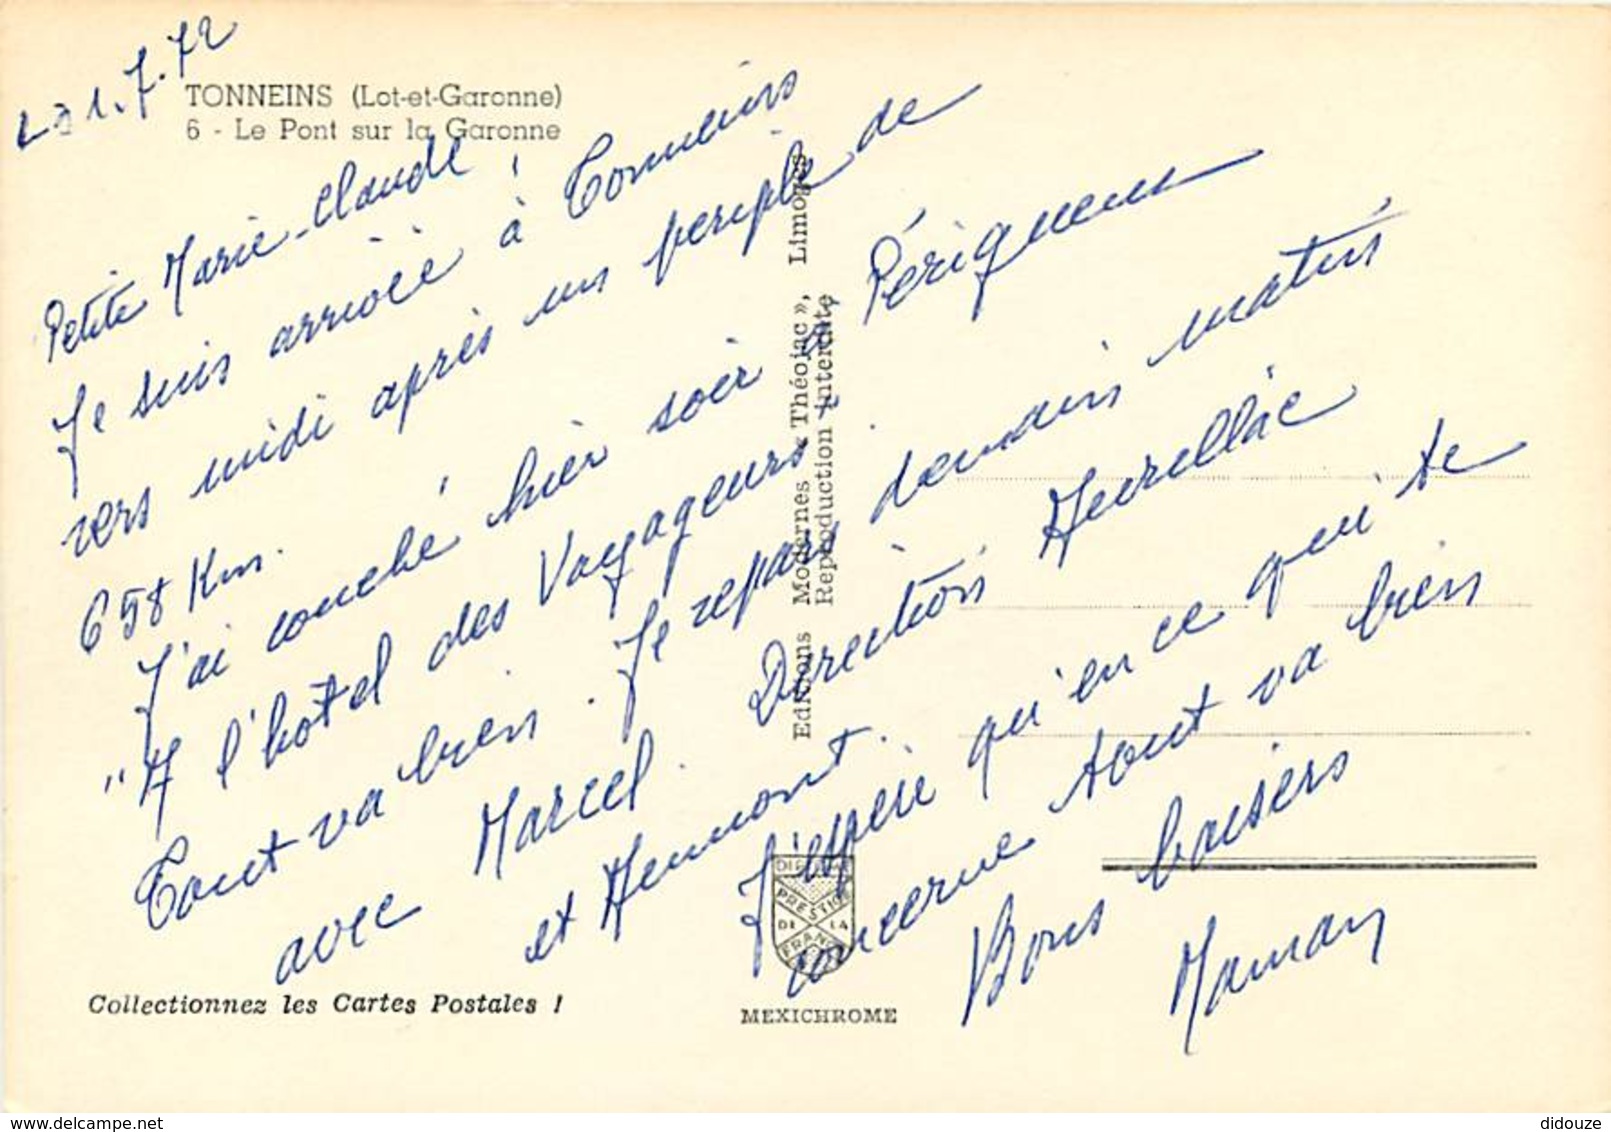 Le 1.7.72
TONNEINS (Lot-et-Garonne)
6 - Le Pont sur la Garonne
Petite Marie-Claude,
Je suis arrivée à Tonneins
vers midi après un periple de
658 Km.
J'ai couché hier soir à Périgueux
"A l'hotel des Voyageurs"
Tout va bien. Je repars demain matin
avec Marcel. Direction Aurillac
et Aumont.
J'espère qu'en ce qui te
concerne tout va bien
Bons baisers
Maman
Editions Modernes « Théojac », Limoges
Reproduction Interdite
DIPLOME
PRESTIGE
DE LA
FRANCE
Collectionnez les Cartes Postales !
MEXICHROME
didouze